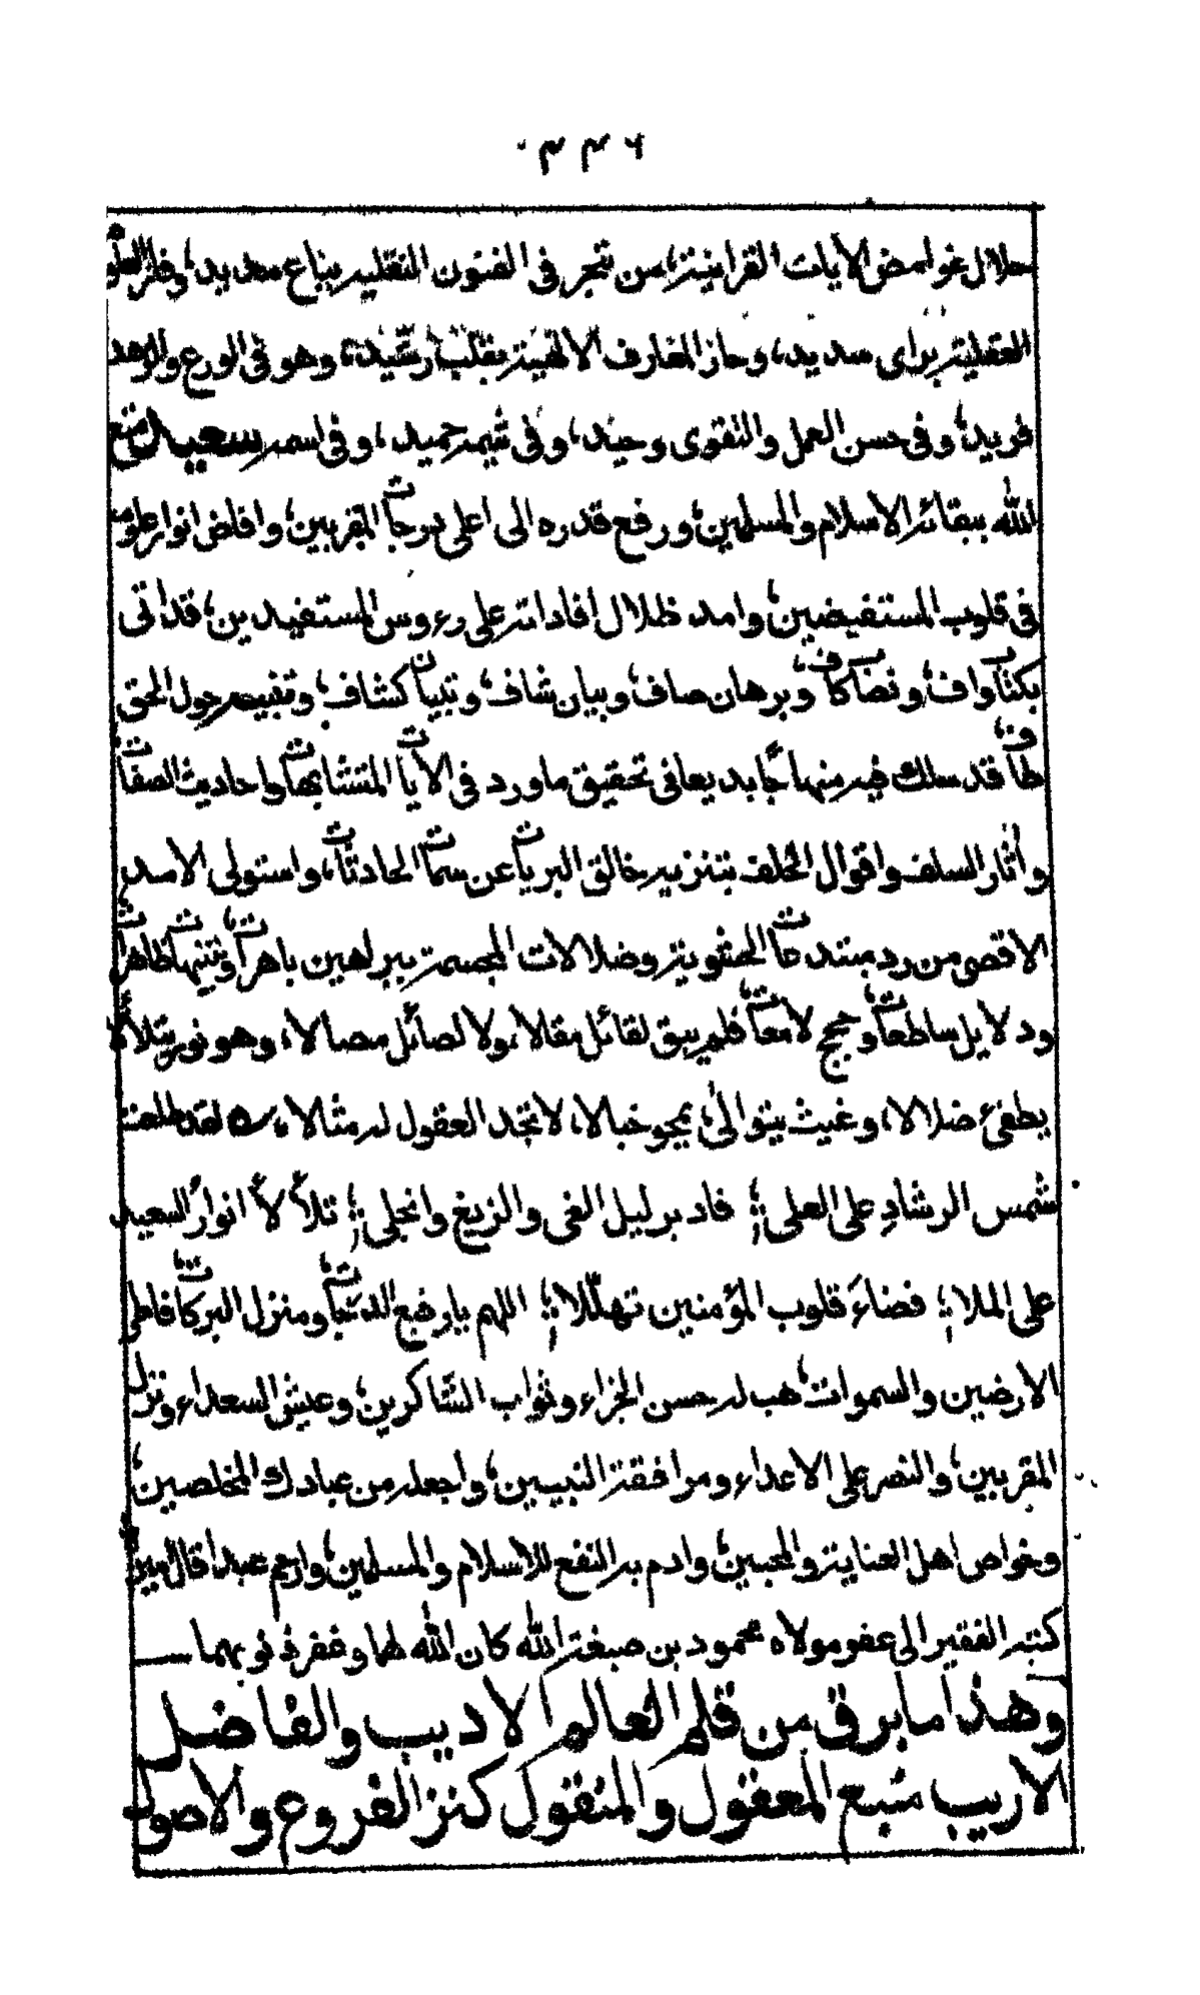 ٣٣٦
حلال غوامض الآيات القرانية؛ من تبحر في الفنون النقلية بباع مديد؛ وفلز العلوم
العقلية براى سديد، وحاز المعارف الالهية بقلب رشيد، وهو في الورع والزهد
فريد، وفي حسن العمل والتقوى وحيد، وفي شيمه حميد، وفي اسمه سعيد متع
الله ببقائه الاسلام والمسلمين؛ ورفع قدره الى اعلى درجات المقربين؛ وافاض انوار علومه
في قلوب المستفيضين؛ وامد ظلال افاداته على رءوس المستفيدين؛ قد اتى
بكتاب واف؛ ونصاب كاف؛ وبرهان صاف؛ وبيان شاف؛ وتبيان كشاف؛ وتفتيه حول الحق
طاف؛ قد سلك فيه منهاجا بديعا في تحقيق ما ورد في الآيات المتشابهات واحاديث الصفات
واثار السلف واقوال الخلف بتنزيه خالق البريات عن سمات الحادثات، واستولى الامد
الاقصى من رد مبتدعات الحشوية وضلالات المجسمة ببراهين باهرات؛ وتنبيهات ظاهرات
ودلايل ساطعات؛ وحجج لامعات؛ فلم يبق لقائل مقالا، ولا لصائل مصالا، وهو نور يتلألأ
يطفئ ضلالا، وغيث يتوالى؛ يمحو خبالا، لا تجد العقول له مثالا، لقد طلعت
شمس الرشاد على العلى؛ فادبر ليل الغى والزيغ وانجلى؛ تلألأ لأ انوار السعيد
على الملا؛ فضاء قلوب المؤمنين تهلّلا؛ اللهم يا رفيع الدرجات؛ ومنزل البركات؛ فاطر
الارضين والسموات؛ هب له حسن الجزاء وثواب الشاكرين؛ وعيش السعداء ونزل
المقربين؛ والنصر على الاعداء ومرافقة النبيين؛ واجعله من عبادك المخلصين؛
وخواص اهل العناية والمحبين؛ وادم به النفع للاسلام والمسلمين؛ وارحم عبدا قال امين
كتبه الفقير الى عفو مولاه محمود بن صبغة الله كان الله لهما وغفر ذنوبهما
وهذا ما برق من قلم العالم الاديب والفاضل
الاريب منبع المعقول والمنقول كنز الفروع والاصول